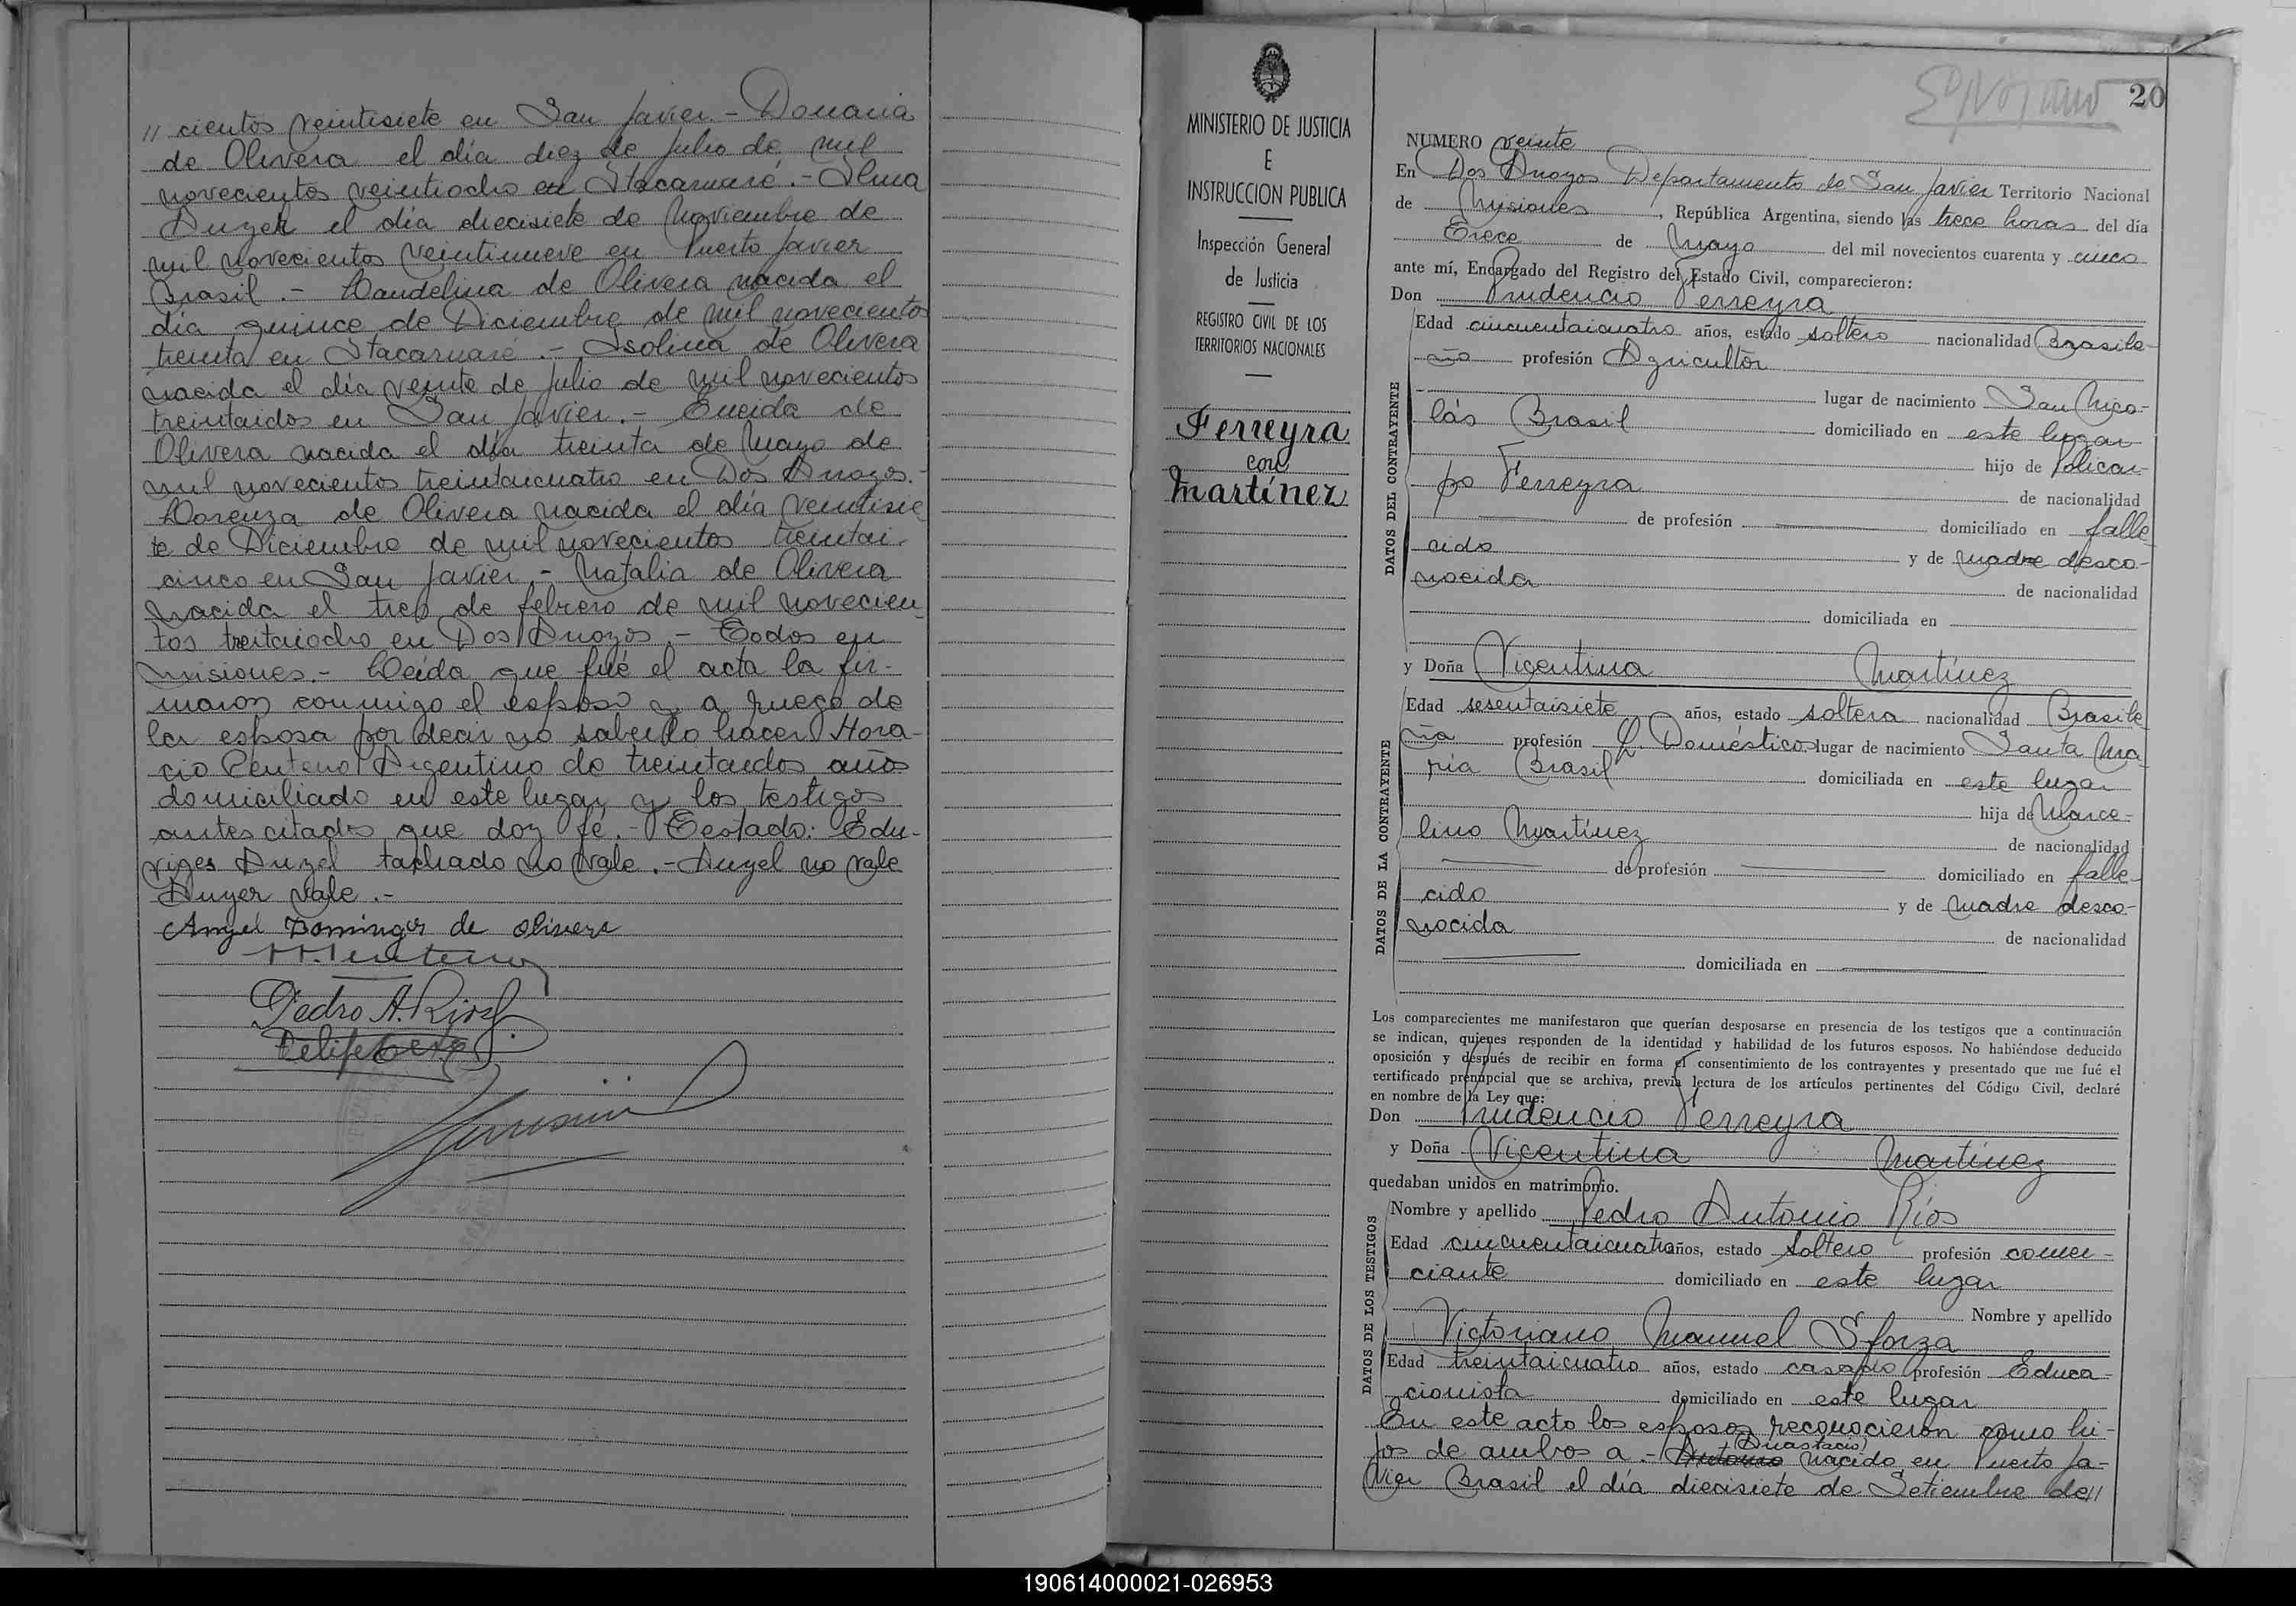 // cientos veintisiete en San Javier.- Donaria
de Olivera el día diez de Julio de mil
novecientos veintiocho en Itacaruaré.- Elma
Auzer el día diecisiete de Noviembre de
mil novecientos veintinueve en Puerto Javier
Brasil.- Laudelina de Olivera nacida el
día quince de Diciembre de mil novecientos
treinta en Itacaruaré.- Isolina de Olivera
nacida el día veinte de Julio de mil novecientos
treintaidos en San Javier.- Eneida de
Olivera nacida el día treinta de Mayo de
mil novecientos treintaicuatro en Dos Arroyos.-
Lorenza de Olivera nacida el día veintisie
te de Diciembre de mil novecientos treintai-
cinco en San Javier.- Natalia de Olivera
nacida el tres de febrero de mil novecien
tos treitaiocho en Dos Arroyos.- Todos en
Misiones.- Leída que fué el acta la fir-
maron conmigo el esposo y a ruego de
la esposa por decir no saberlo hacer Hora-
cio Centeno Argentino de treintaidos años
domiciliado en este lugar y los testigos
antes citados que doy fé.- Testado: Edu-
viges Auzel tachado no vale.- Auzel no vale
Auzer vale.-
Angel Domingos de olivera
H. Centeno
Pedro A. Rios
Felipe
MINISTERIO DE JUSTICIA
E
INSTRUCCION PUBLICA
Inspección General
de Justicia
REGISTRO CIVIL DE LOS
TERRITORIOS NACIONALES
Ferreyra
con
Martínez
20
NUMERO veinte
En Dos Arroyos Departamento de San Javier Territorio Nacional
de Misiones, República Argentina, siendo las trece horas del día
Trece de Mayo del mil novecientos cuarenta y cinco
ante mí, Encargado del Registro del Estado Civil, comparecieron:
Don Prudencio Ferreyra
DATOS DEL CONTRAYENTE
Edad cincuentaicuatro años, estado soltero nacionalidad Brasile-
ño profesión Agricultor
lugar de nacimiento San Nico-
lás Brasil domiciliado en este lugar
hijo de Policar-
po Ferreyra de nacionalidad
de profesión domiciliado en falle
cido y de Madre desco-
nocida de nacionalidad
domiciliada en
y Doña Vicentina Martínez
DATOS DE LA CONTRAYENTE
Edad sesentaisiete años, estado soltera nacionalidad Brasile
ña profesión Q. Domésticos lugar de nacimiento Santa Ma
ría Brasil domiciliada en este lugar
hija de Marce-
lino Martínez de nacionalidad
de profesión domiciliado en falle-
cido y de Madre desco-
nocida de nacionalidad
domiciliada en
Los comparecientes me manifestaron que querían desposarse en presencia de los testigos que a continuación
se indican, quienes responden de la identidad y habilidad de los futuros esposos. No habiéndose deducido
oposición y después de recibir en forma el consentimiento de los contrayentes y presentado que me fué el
certificado prenupcial que se archiva, previa lectura de los artículos pertinentes del Código Civil, declaré
en nombre de la Ley que:
Don Prudencio Ferreyra
y Doña Vicentina Martínez
quedaban unidos en matrimonio.
DATOS DE LOS TESTIGOS
Nombre y apellido Pedro Antonio Ríos
Edad cincuentaicuatro años, estado soltero profesión comer-
ciante domiciliado en este lugar
Nombre y apellido
Victoriano Manuel Sforza
Edad treintaicuatro años, estado casado profesión Educa-
cionista domiciliado en este lugar
En este acto los esposos reconocieron como hi-
jos de ambos a.- Antonio (Anastacio) nacido en Puerto Ja-
vier Brasil el día diecisiete de Setiembre de//
190614000021-026953